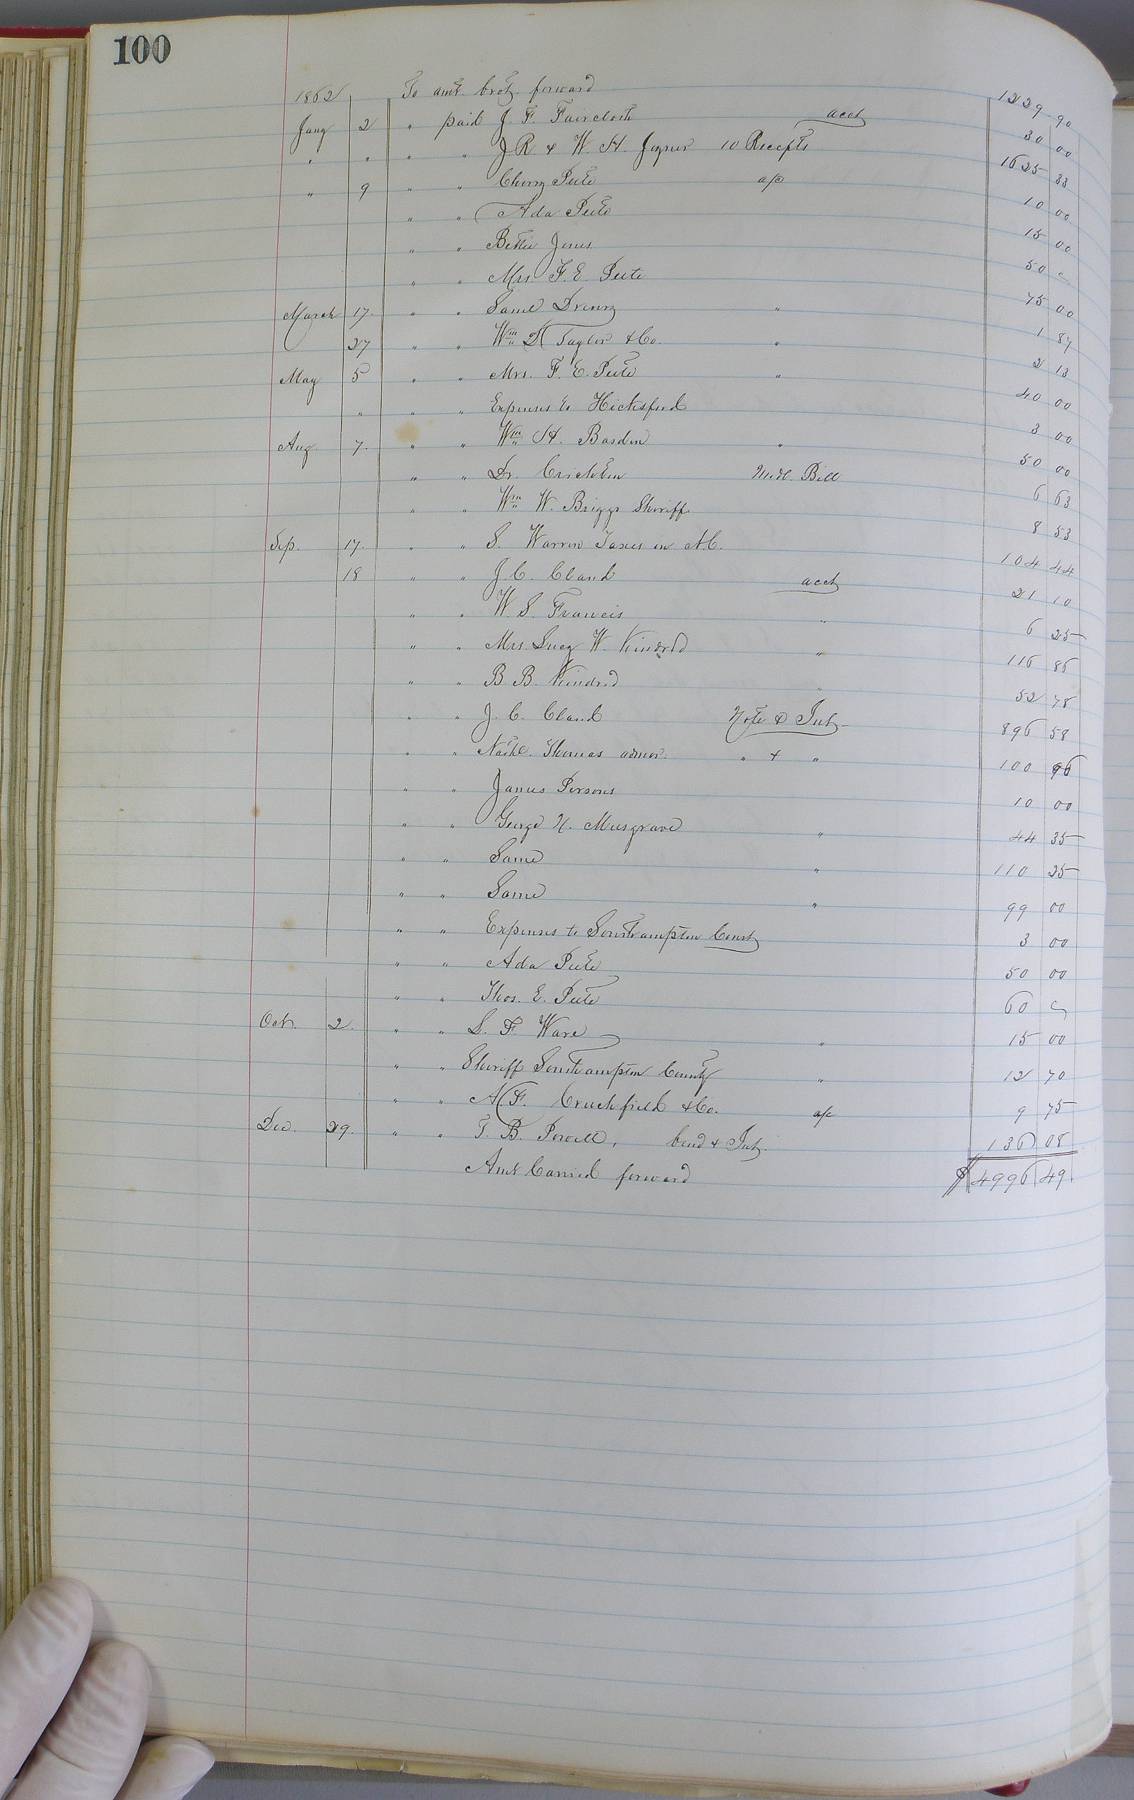 100
1862 To amt. brot. forward 1229 90
Jany 2 " paid J. F. Faircloth acct 30 00
" " " " J. R. & W. H. Joyner 10 Receipts 1625 33
" 9 " " Cherry Peete a/c 10 00
" " Ada Peete 15 00
" " Bettie Jones 50 "
" " Mrs F. E. Peete 75 00
March 17 " " Saml Drewry " 1 87
27 " " Wm D Taylor & Co. " 2 13
May 5 " " Mrs. F. E. Peete " 40 00
" " " Expenses to Hicksford 3 00
Aug 7 " " Wm H. Barden " 50 00
" " Dr. Crichton Med. Bill 6 63
" " Wm W. Briggs Sheriff 8 53
Sep. 17 " " S. Warren Taxes in N.C. 104 44
18 " " J. C. Claud acct 21 10
" " W. S. Francis " 6 25
" " Mrs. Lucy W. Kindred " 116 85
" " B. B. Kindred " 52 78
" " J. C. Claud Note & Int. 896 58
" " Nathl. Thomas admor. " & " 100 96
" " James Persons 10 00
" " George N. Musgrave " 44 35
" " Same " 110 25
" " Same " 99 00
" " Expenses to Southampton Court 3 00
" " Ada Peete 50 00
" " Thos. E. Peete 60 "
Oct. 2 " " S. F. Ware " 15 00
" " Sheriff Southampton County " 12 70
" " A. F. Crutchfield & Co. a/c 9 75
Dec. 29 " " T. B. Powell, bond & Int. 136 08
Amt Carried forward $4996 49